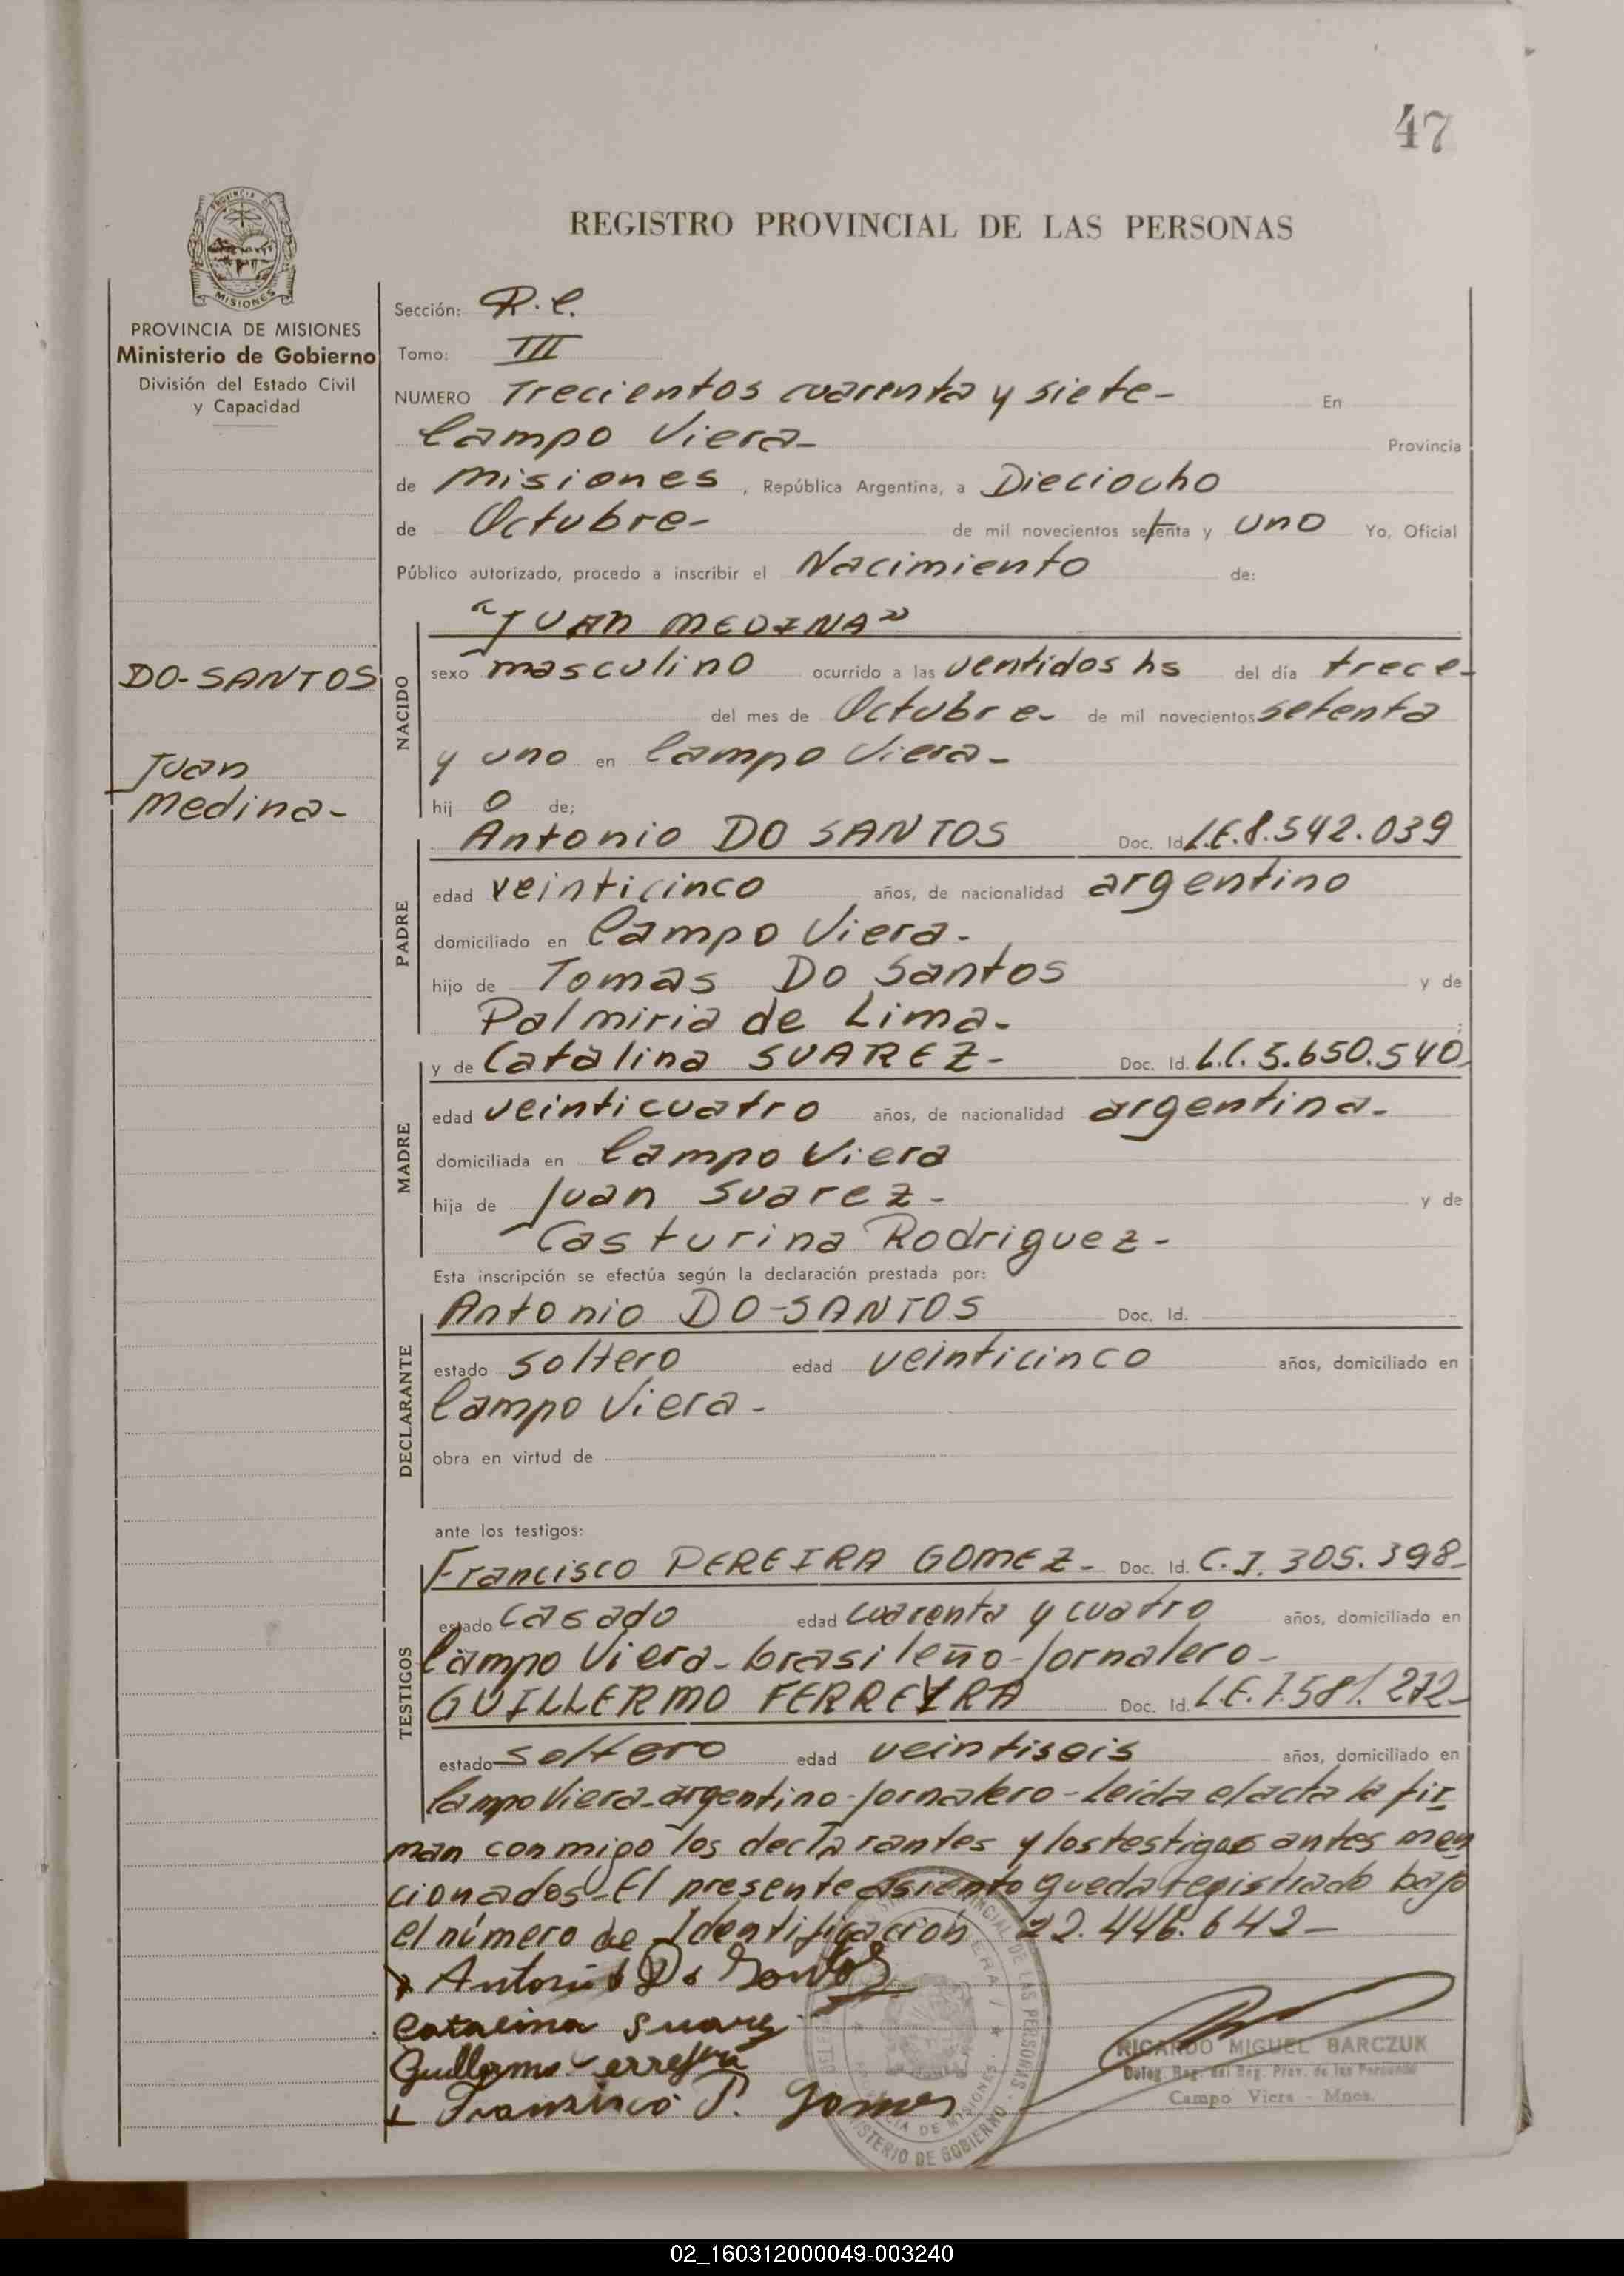 47
REGISTRO PROVINCIAL DE LAS PERSONAS
PROVINCIA DE MISIONES
Ministerio de Gobierno
División del Estado Civil
y Capacidad
DO-SANTOS
Juan
Medina-
Sección: R.C.
Tomo: III
NUMERO Trecientos cuarenta y siete- En
Campo Viera- Provincia
de Misiones, República Argentina, a Dieciocho
de Octubre- de mil novecientos setenta y uno Yo, Oficial
Público autorizado, procedo a inscribir el Nacimiento de:
NACIDO
"JUAN MEDINA"
sexo masculino ocurrido a las ventidos hs del día trece-
del mes de Octubre- de mil novecientos setenta
y uno en Campo Viera-
hij o de;
PADRE
Antonio DO SANTOS Doc. Id. L.E. 8.542.039
edad veinticinco años, de nacionalidad argentino
domiciliado en Campo Viera-
hijo de Tomas Do Santos y de
Palmiria de Lima- ;
MADRE
y de Catalina SUAREZ- Doc. Id. L.C. 5.650.540
edad veinticuatro años, de nacionalidad argentina-
domiciliada en Campo Viera
hija de Juan Suarez- y de
Casturina Rodriguez-
Esta inscripción se efectúa según la declaración prestada por:
DECLARANTE
Antonio DO-SANTOS Doc. Id.
estado soltero edad veinticinco años, domiciliado en
Campo Viera-
obra en virtud de
ante los testigos:
TESTIGOS
Francisco PEREIRA GOMEZ- Doc. Id. C.I. 305.398-
estado casado edad cuarenta y cuatro años, domiciliado en
Campo Viera-brasileño-jornalero-
GUILLERMO FERREYRA Doc. Id. L.E. 7.581.272-
estado soltero edad veintiseis años, domiciliado en
Campo Viera-argentino-jornalero-Leída el acta la fir-
man conmigo los declarantes y los testigos antes men
cionados-El presente asiento queda registrado bajo
el número de Identificación 22.446.642-
Antonio Do Santos
Catalina Suarez
Guillermo Ferreyra
Francisco P. Gomes
RICARDO MIGUEL BARCZUK
Deleg. Reg. del Reg. Prov. de las Personas
Campo Viera - Mnes.
02_160312000049-003240